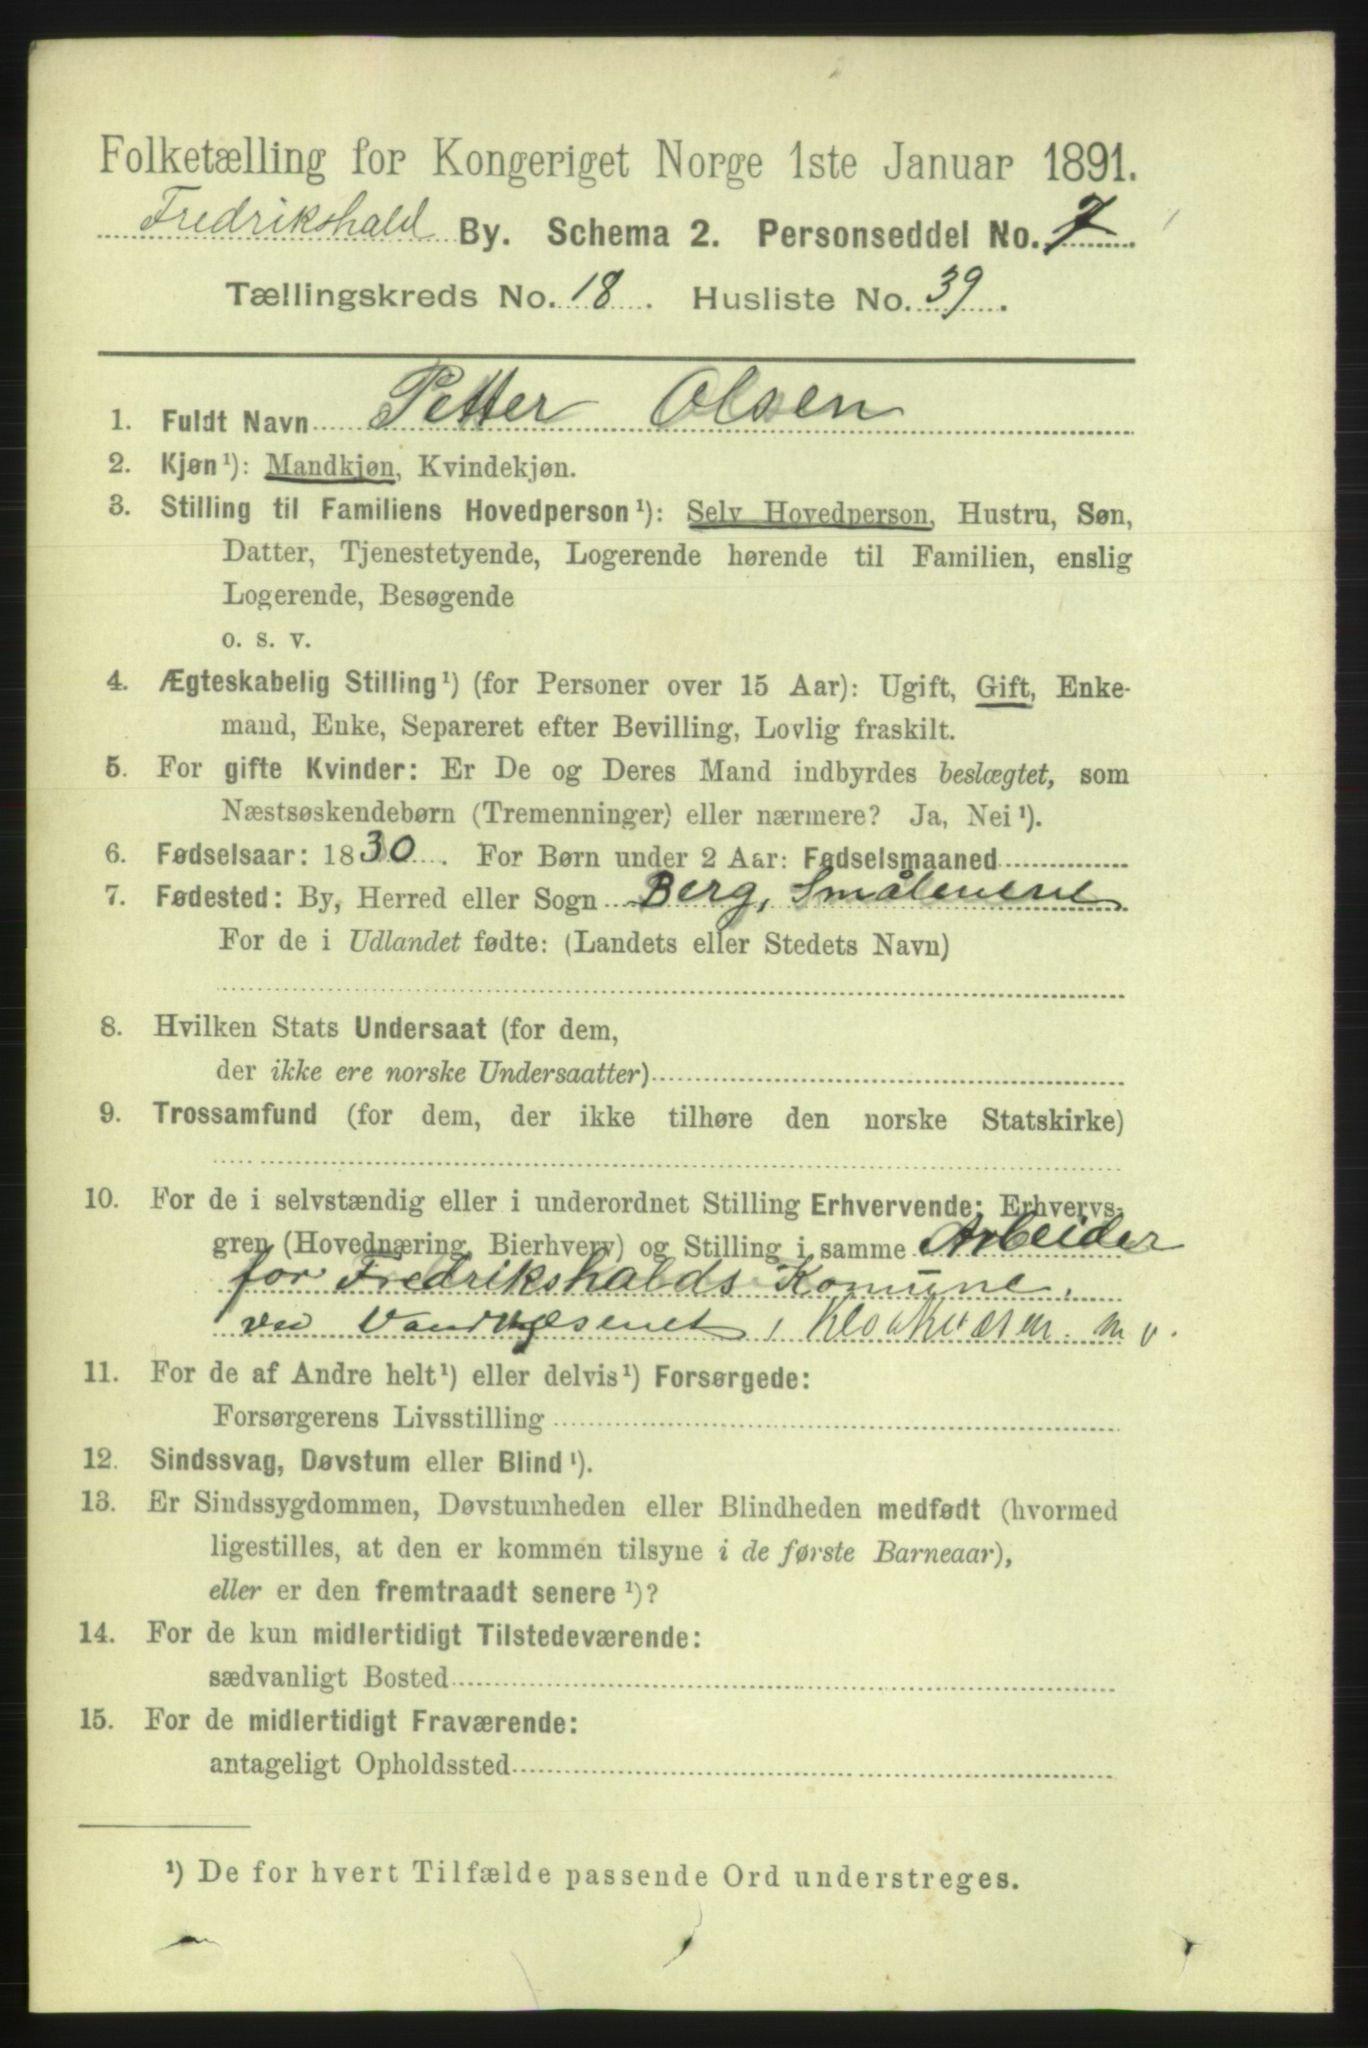 Folketælling for Kongeriget Norge 1ste Januar 1891.
Fredrikshald By. Schema 2. Personseddel No. 7.
Tællingskreds No. 18. Husliste No. 39.
1. Fuldt Navn Petter Olsen
2. Kjøn¹): Mandkjøn, Kvindekjøn.
3. Stilling til Familiens Hovedperson¹): Selv Hovedperson, Hustru, Søn,
Datter, Tjenestetyende, Logerende hørende til Familien, enslig
Logerende, Besøgende
o. s. v.
4. Ægteskabelig Stilling¹) (for Personer over 15 Aar): Ugift, Gift, Enke-
mand, Enke, Separeret efter Bevilling, Lovlig fraskilt.
5. For gifte Kvinder: Er De og Deres Mand indbyrdes beslægtet, som
Næstsøskendebørn (Tremenninger) eller nærmere? Ja, Nei¹).
6. Fødselsaar: 1830. For Børn under 2 Aar: Fødselsmaaned
7. Fødested: By, Herred eller Sogn Berg, Smålenene
For de i Udlandet fødte: (Landets eller Stedets Navn)
8. Hvilken Stats Undersaat (for dem,
der ikke ere norske Undersaatter)
9. Trossamfund (for dem, der ikke tilhøre den norske Statskirke)
10. For de i selvstændig eller i underordnet Stilling Erhvervende: Erhvervs-
gren (Hovednæring, Bierhverv) og Stilling i samme Arbeider
for Fredrikshalds Komune,
ved Vandvæsenet, Kloakvæsen m v.
11. For de af Andre helt¹) eller delvis¹) Forsørgede:
Forsørgerens Livsstilling
12. Sindssvag, Døvstum eller Blind¹).
13. Er Sindssygdommen, Døvstumheden eller Blindheden medfødt (hvormed
ligestilles, at den er kommen tilsyne i de første Barneaar),
eller er den fremtraadt senere¹)?
14. For de kun midlertidigt Tilstedeværende:
sædvanligt Bosted
15. For de midlertidigt Fraværende:
antageligt Opholdssted
¹) De for hvert Tilfælde passende Ord understreges.